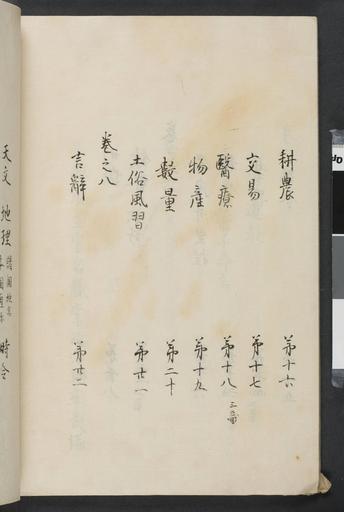 耕農 第十六
交易 第十七
醫療 第十八
物産 第十九
數量 第二十
土俗風習 第廿一
卷之八
言辭 第廿二
天文 地理 時令